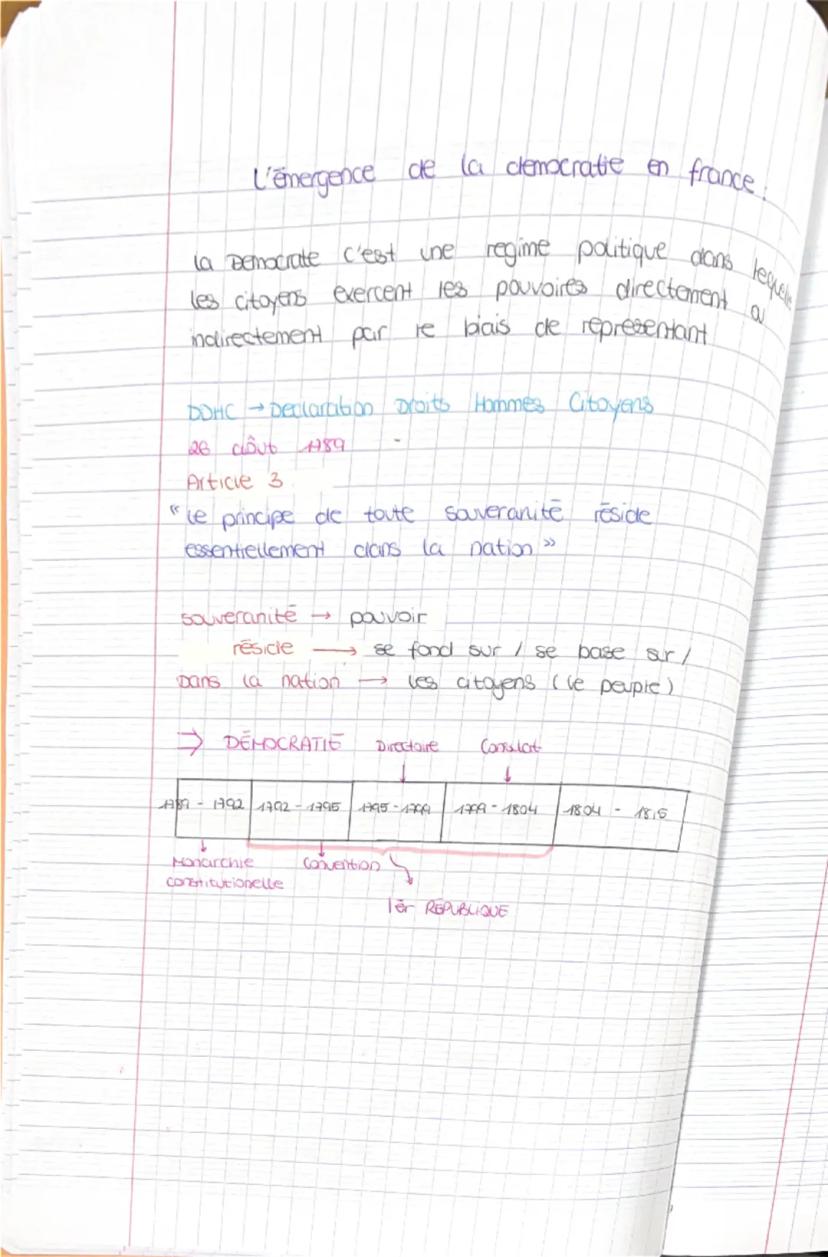 L'émergence de la democratie en france.
la Démocratie c'est une regime politique dans lequel
les citoyens exercent les pouvoires directement
indirectement par le biais de representant
DDHC → Declaration Droits Hommes Citoyens
26 août 1789 -
Article 3
"le principe de toute souveranité réside
essentiellement dans la nation"
souveranité → pouvoir
réside → se fond sur / se base sur /
Dans la nation → les citoyens (le peuple)
⇒ DÉMOCRATIE Directoire Consulat
1789 - 1792 1792 - 1795 1795 - 1799 1799 - 1804 1804 - 1815
Monarchie Convention
constitutionelle
1èr RÉPUBLIQUE